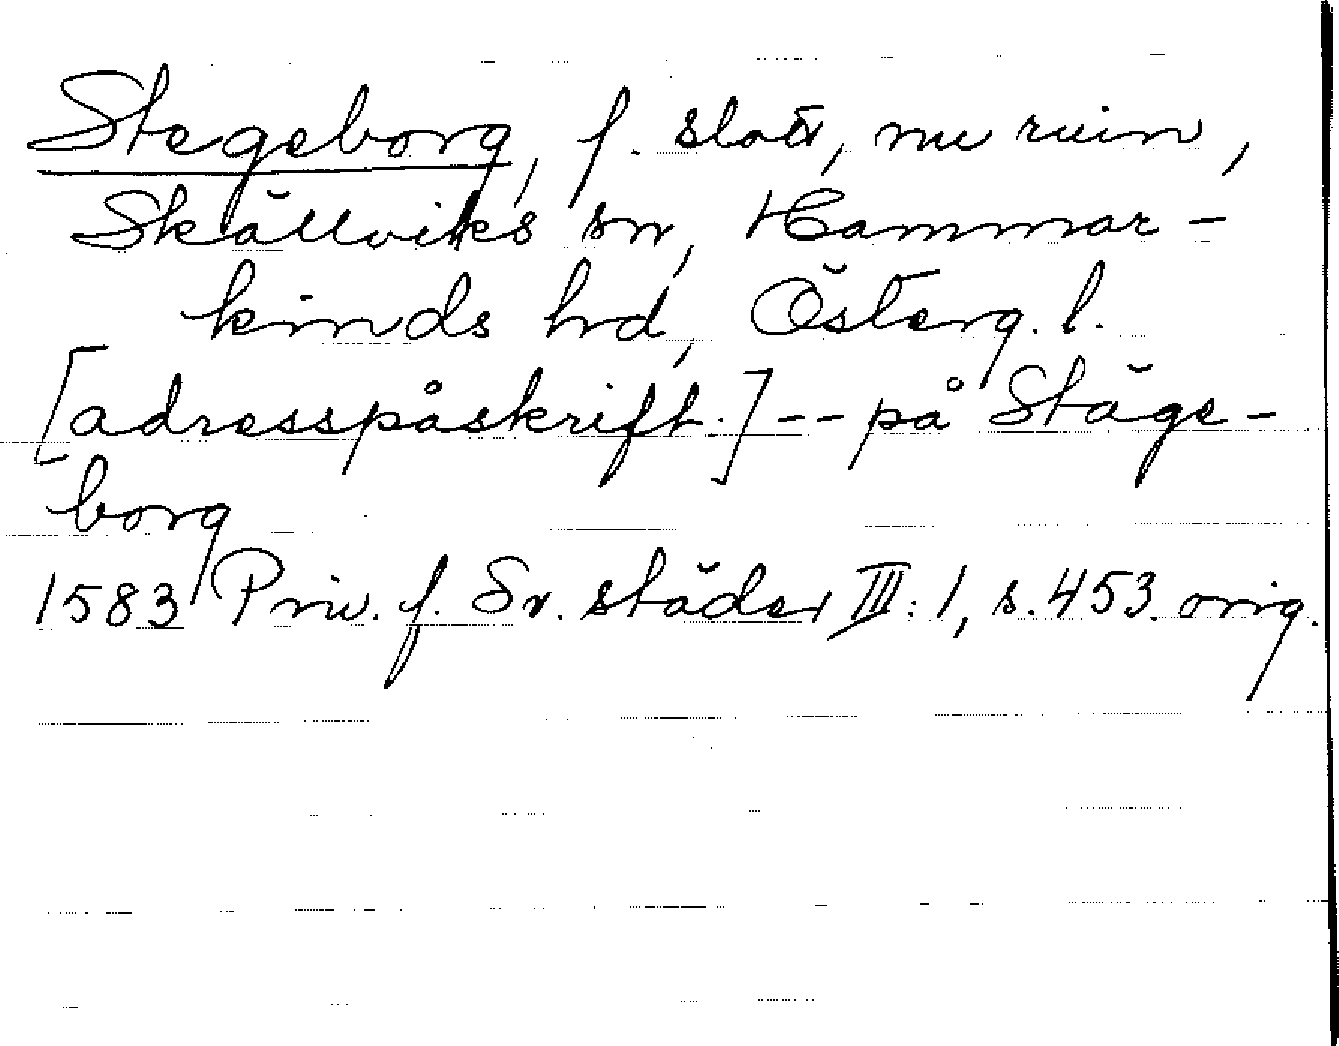 Stegeborg, f. slott, nu ruin,
Skällviks sn, Hammar-
kinds hd, Österg. l.
[adresspåskrift.] -- på Stäge-
borg
1583 Priv. f. Sv. städer III: 1, s. 453. orig.